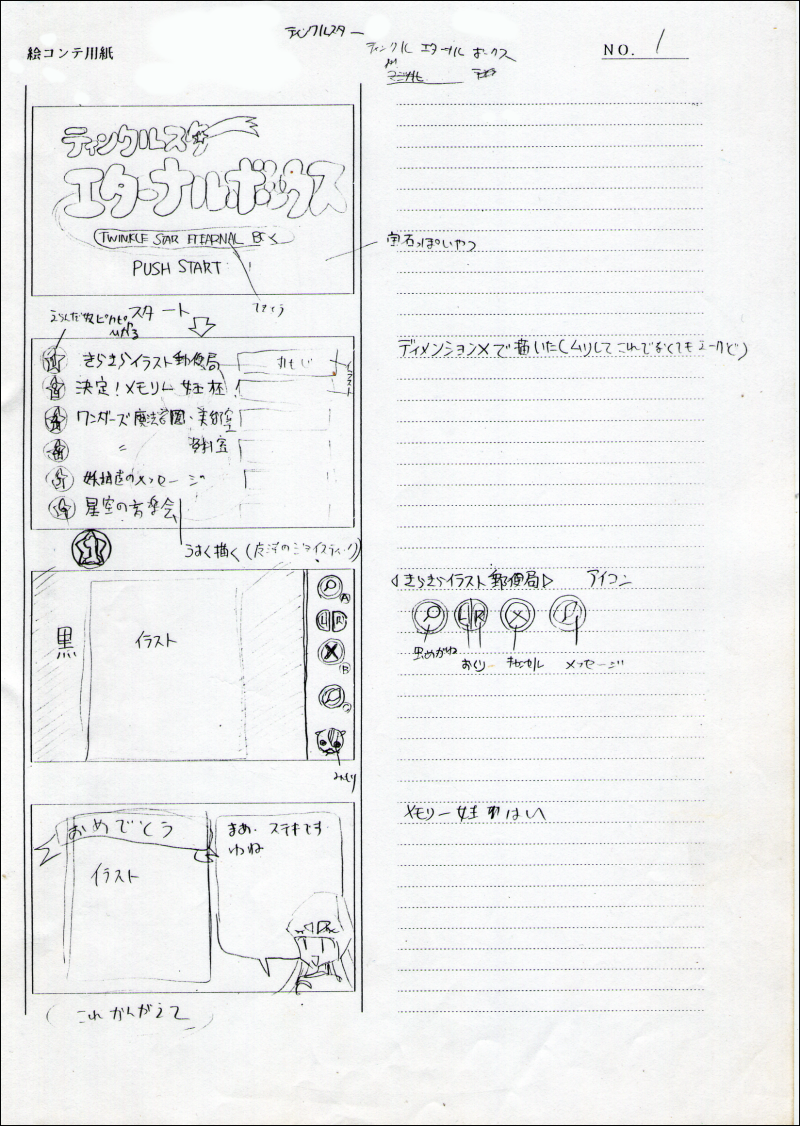 ティンクルスター
ティンクル エターナル ボックス
絵コンテ用紙
NO. 1
ティンクルスター
エターナルボックス
TWINKLE STAR ETEARNAL BOX
PUSH START
宝石っぽいやつ
スタート
きらきらイラスト郵便局
決定!メモリー 女王 杯!
ワンダーズ魔法学園・美術室
〃 資料室
妖精達のメッセージ
星空の音楽会
イラスト
ディメンションXで描いた(ムリしてこれでなくてもエークど)
うすく描く(
黒
イラスト
A
L R
X
B
C
◁きらきらイラスト郵便局▷ アイコン
L R X
虫めがね おくり キャンセル メッセージ
おめでとう
イラスト
まあ・ステキです
わね
メモリー女王
これ かんがえて